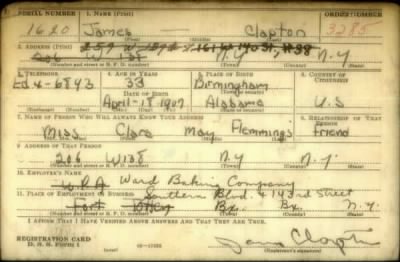 SERIAL NUMBER 1. NAME (Print) ORDER NUMBER
1620 James — Clapton 3285
2. ADDRESS (Print)
161 W 140 St, #98
206 W 138 N.Y N.Y
(Number and street or R. F. D. number) (Town) (County) (State)
3. TELEPHONE 4. AGE IN YEARS 5. PLACE OF BIRTH 6. COUNTRY OF CITIZENSHIP
Ed 4-6843 33 Birmingham
DATE OF BIRTH (Town or county)
April-18 1907 Alabama U.S
(Exchange) (No.) (Mo.) (Day) (Yr.) (State or country)
7. NAME OF PERSON WHO WILL ALWAYS KNOW YOUR ADDRESS 8. RELATIONSHIP OF THAT PERSON
Miss Clara May Flemmings friend
(Mr., Mrs., Miss) (First) (Middle) (Last)
9. ADDRESS OF THAT PERSON
206 W 138 N.Y N.Y.
(Number and street or R. F. D. number) (Town) (County) (State)
10. EMPLOYER'S NAME
W.P.A Ward Baking Company
11. PLACE OF EMPLOYMENT OR BUSINESS Southern Blvd. & 143rd Street
Fort Bx. Bx. N.Y.
(Number and street or R. F. D. number) (Town) (County) (State)
I AFFIRM THAT I HAVE VERIFIED ABOVE ANSWERS AND THAT THEY ARE TRUE.
REGISTRATION CARD
D. S. S. Form 1
James Clapton
(Registrant's signature)